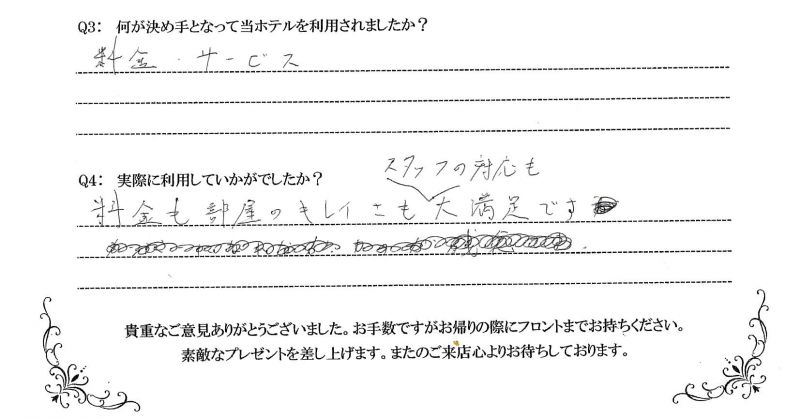 Q3: 何が決め手となって当ホテルを利用されましたか？
料金・サービス
Q4: 実際に利用していかがでしたか？
スタッフの対応も
料金も部屋のキレイさも大満足です
貴重なご意見ありがとうございました。お手数ですがお帰りの際にフロントまでお持ちください。
素敵なプレゼントを差し上げます。またのご来店心よりお待ちしております。